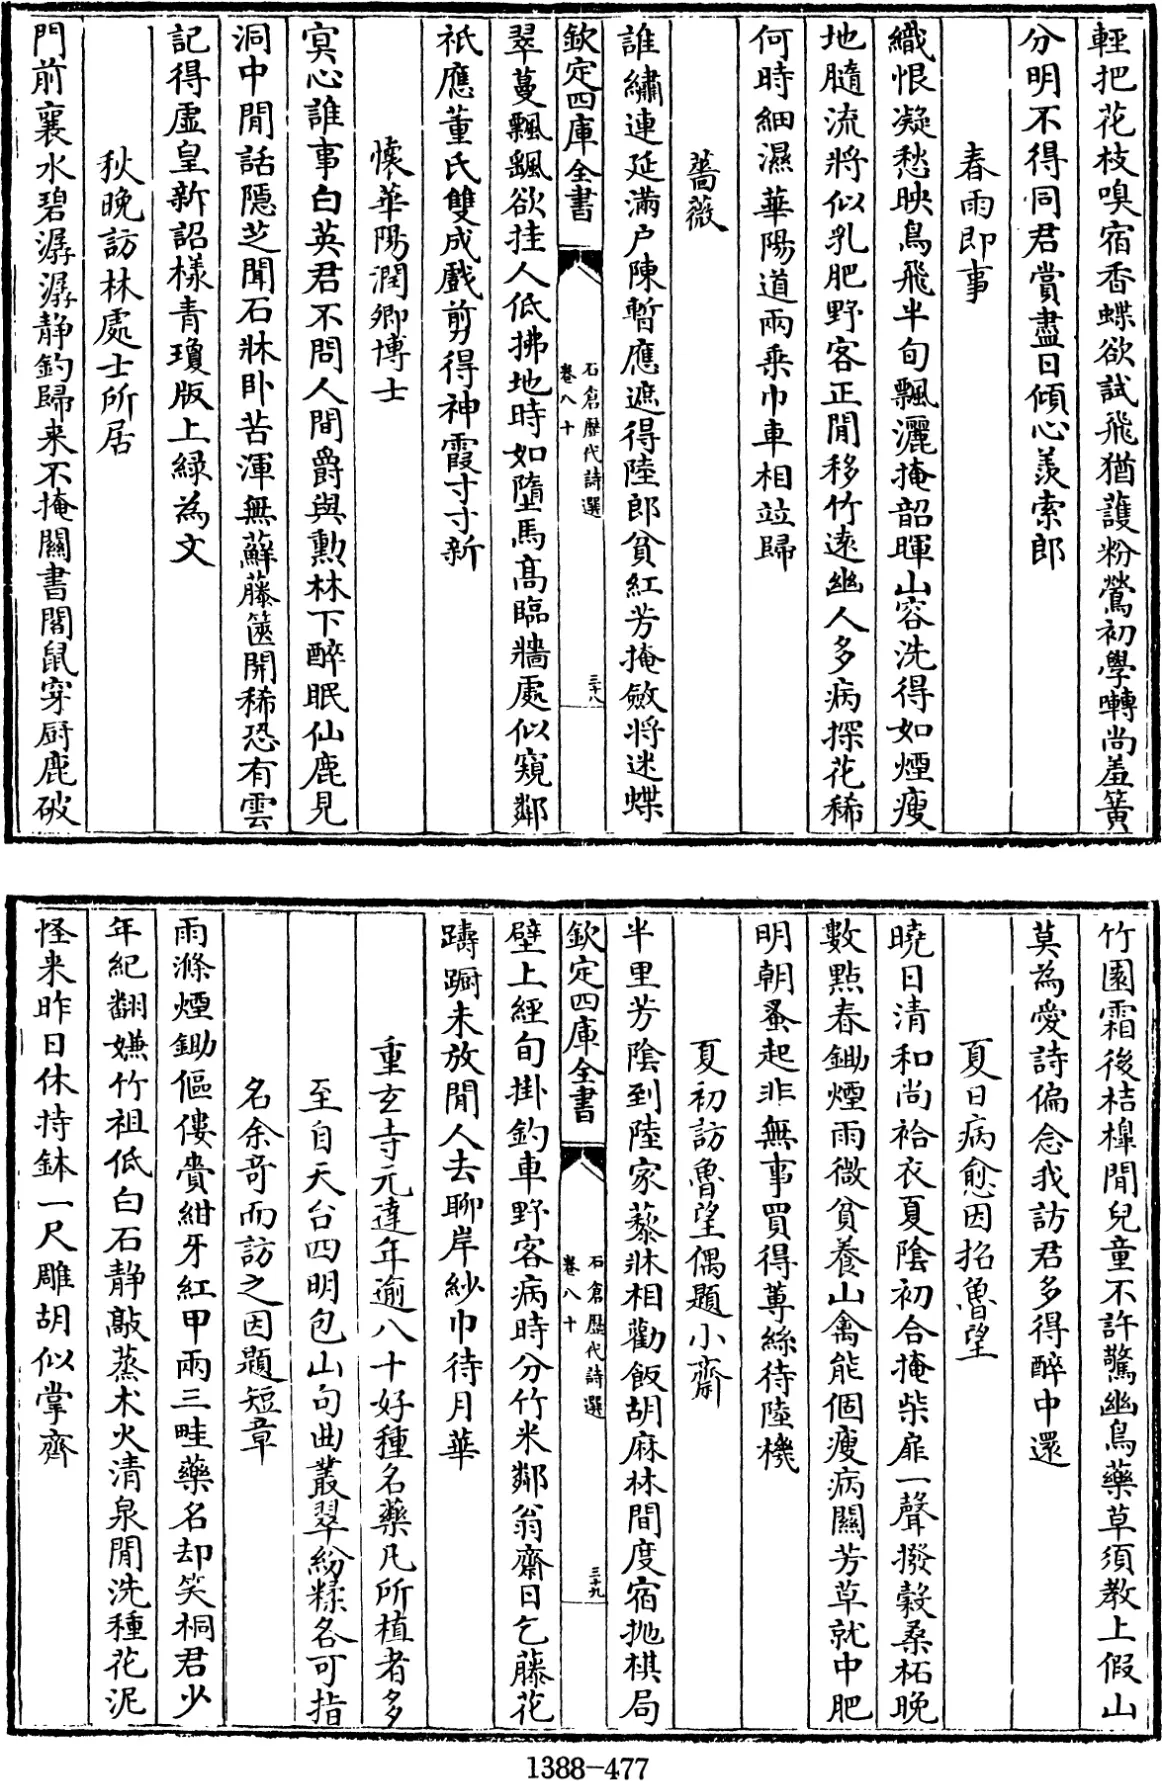 輕把花枝嗅宿香蝶欲試飛猶護粉鶯初學囀尚羞簧
分明不得同君賞盡日傾心羨索郎
春雨即事
織恨凝愁映鳥飛半旬飄灑掩韶暉山容洗得如煙瘦
地髓流將似乳肥野客正閒移竹遠幽人多病探花稀
何時細濕華陽道兩乘巾車相竝歸
薔薇
誰繡連延滿户陳暫應遮得陸郎貧紅芳掩斂將迷蝶
欽定四庫全書
石倉歷代詩選
卷八十
三十八
翠蔓飄颻欲挂人低拂地時如墮馬高臨牆處似窺鄰
衹應董氏雙成戲剪得神霞寸寸新
懷華陽潤卿博士
㝠心誰事白英君不問人間爵與勲林下醉眠仙鹿見
洞中閒話隱芝聞石牀卧苦渾無蘚藤篋開稀恐有雲
記得虛皇新詔樣青瓊版上緑為文
秋晚訪林處士所居
門前襄水碧潺潺靜釣歸來不掩關書閣鼠穿厨鹿破
竹園霜後桔槹閒兒童不許驚幽鳥藥草須教上假山
莫為愛詩偏念我訪君多得醉中還
夏日病愈因招魯望
曉日清和尚袷衣夏陰初合掩柴扉一聲撥穀桑柘晚
數點春鋤煙雨微貧養山禽能個瘦病關芳草就中肥
明朝蚤起非無事買得蓴絲待陸機
夏初訪魯望偶題小齋
半里芳陰到陸家藜牀相勸飯胡麻林間度宿抛棋局
欽定四庫全書
石倉歷代詩選
卷八十
三十九
壁上經旬掛釣車野客病時分竹米鄰翁齋日乞藤花
躊蹰未放閒人去聊岸紗巾待月華
重玄寺元達年逾八十好種名藥凡所植者多
至自天台四明包山句曲叢翠紛糅各可指
名余竒而訪之因題短章
雨滌煙鋤傴僂賫紺牙紅甲兩三畦藥名却笑桐君少
年紀翻嫌竹祖低白石靜敲蒸朮火清泉閒洗種花泥
怪來昨日休持鉢一尺雕胡似掌齊
1388-477